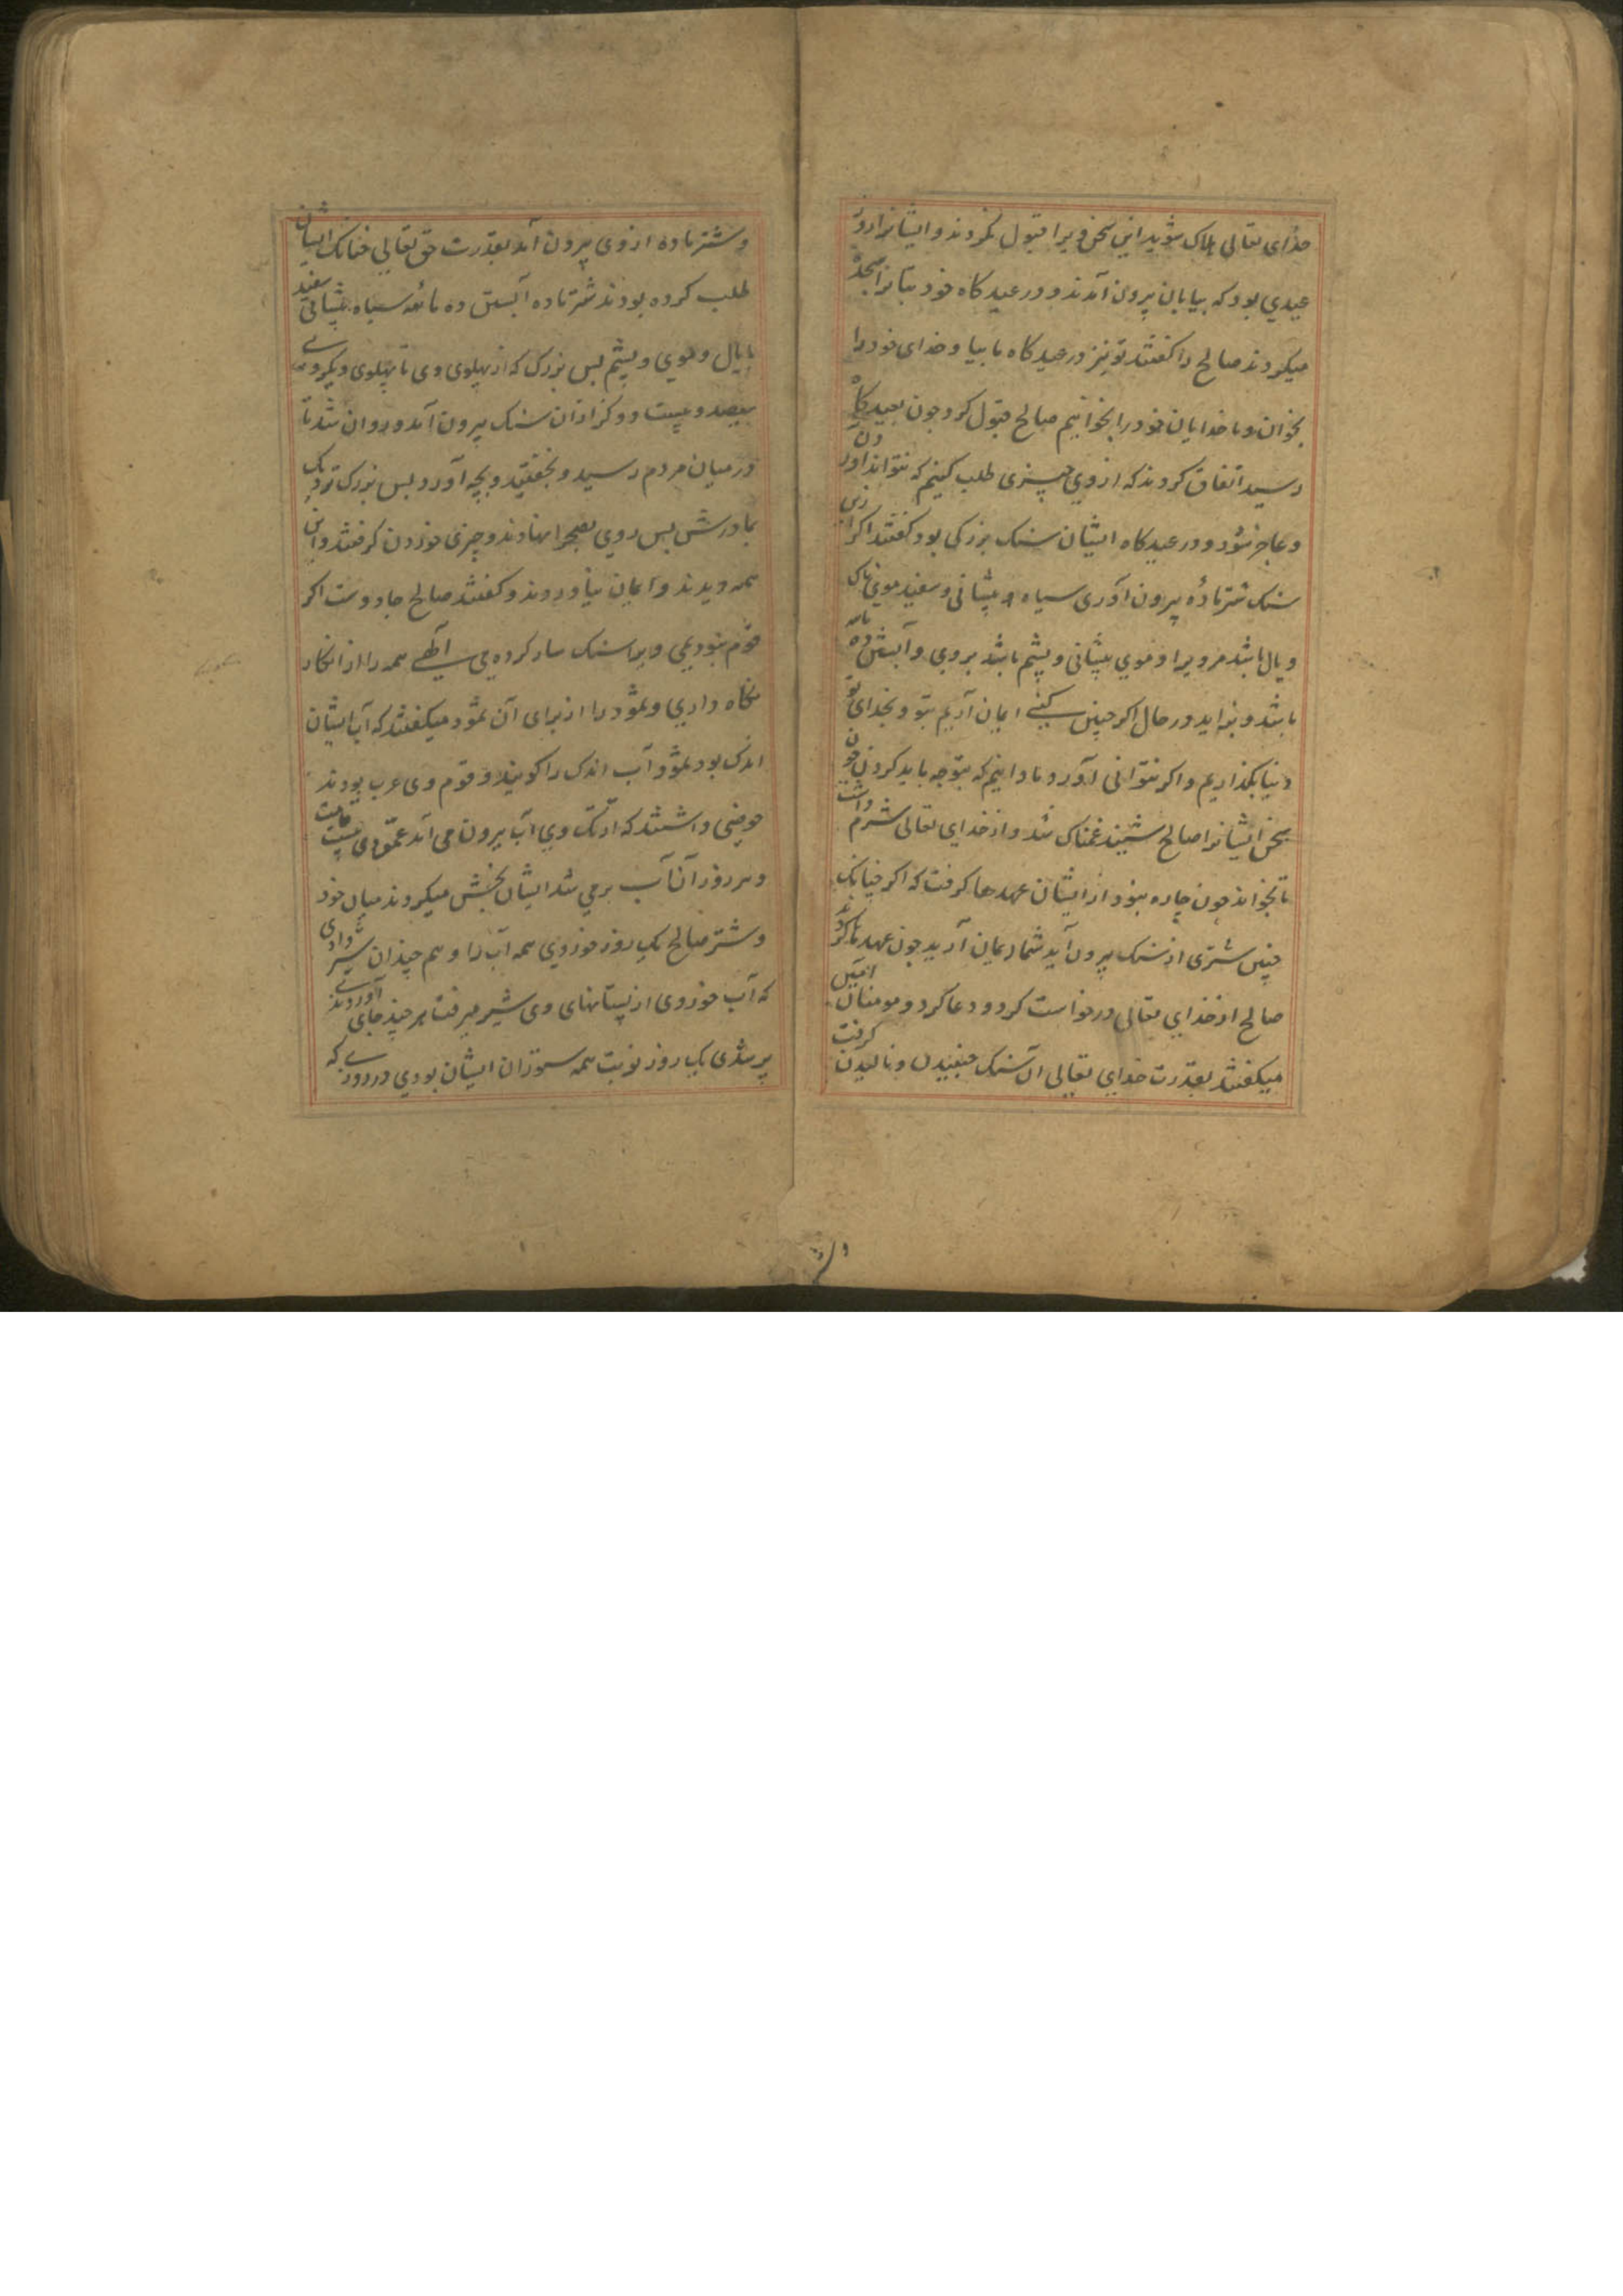 خدای تعالی هلاک شوید این سخن ویرا قبول نکردند و ایشانرا روز
عیدی بود که بیابان بیرون آمدند و در عید کاه خود بتانرا سجده
میکردند صالح را کفتند تو نیز در عید کاه ما بیا و خدای خود را
بخوان و ما خدایان خود را بخوانیم صالح قبول کرد چون بعید کاه
رسید اتفاق کردند که از وی چیزی طلب کنیم که نتواند آوردن
و عاجز شود و در عید کاه ایشان سنک بزرکی بود کفتند اکر ازین
سنک شتر ماده بیرون آوری سیاه پیشانی و سفید موی باک
و یال باشد مرو یرا و موی پیشانی و پشم باشد بروی و آبستن ده ماهه
باشد و بزاید در حال اکر چنین کنی ایمان آریم بتو و بخدای تو
دنیا بکذاریم و اکر نتوانی آورد ما دانیم که بتو چه باید کردن چون
سخن ایشانرا صالح شنید غمناک شد و از خدای تعالی شرم داشت
تا بخواند چون چاره نبود از ایشان عهدها کرفت که اکر چنانک
چنین شتری از سنک بیرون آید شما ایمان آرید چون عهد ها کردند
صالح از خدای تعالی درخواست کرد و دعا کرد و مومنان آمین
میکفتند بقدرت خدای تعالی آن سنک جنبیدن و نالیدن کرفت
و شتر ماده از وی بیرون آمد بقدرت حق تعالی چنانک ایشان
طلب کرده بودند شتر ماده آبستن ده ماهه سیاه پیشانی سفید
با یال و موی و پشم بس بزرک که از پهلوی وی تا پهلوی دیکر وی
سیصد و بیست و دو کز از آن سنک بیرون آمد و روان شد تا
در میان مردم رسید و بخفتید و بچه آورد بس بزرک نزدیک
بمادرش بس روی بصحرا نهادند و چیزی خوردن کرفتند و این
همه دیدند و ایمان نیاوردند و کفتند صالح جادوست اکر
قوم نبودیمی ویرا سنک سار کرده می الهی همه را از انکار
نکاه داری و ثمود را از برای آن ثمود میکفتند که آب ایشان
اندک بود ثمود آب اندک را کویند و قوم وی عرب بودند
حوضی داشتند که از تک وی آب بیرون می آمد عمق وی بیست قامت
و هر روز آن آب بر می شد ایشان بخش میکردند میان خود
و شتر صالح یک روز خوردی همه آب را و هم چندان شیر دادی
که آب خوردی از پستانهای وی شیر میرفت هر چند جای آوردندی
پر شدی یک روز نوبت همه ستوران ایشان بودی در روزی که